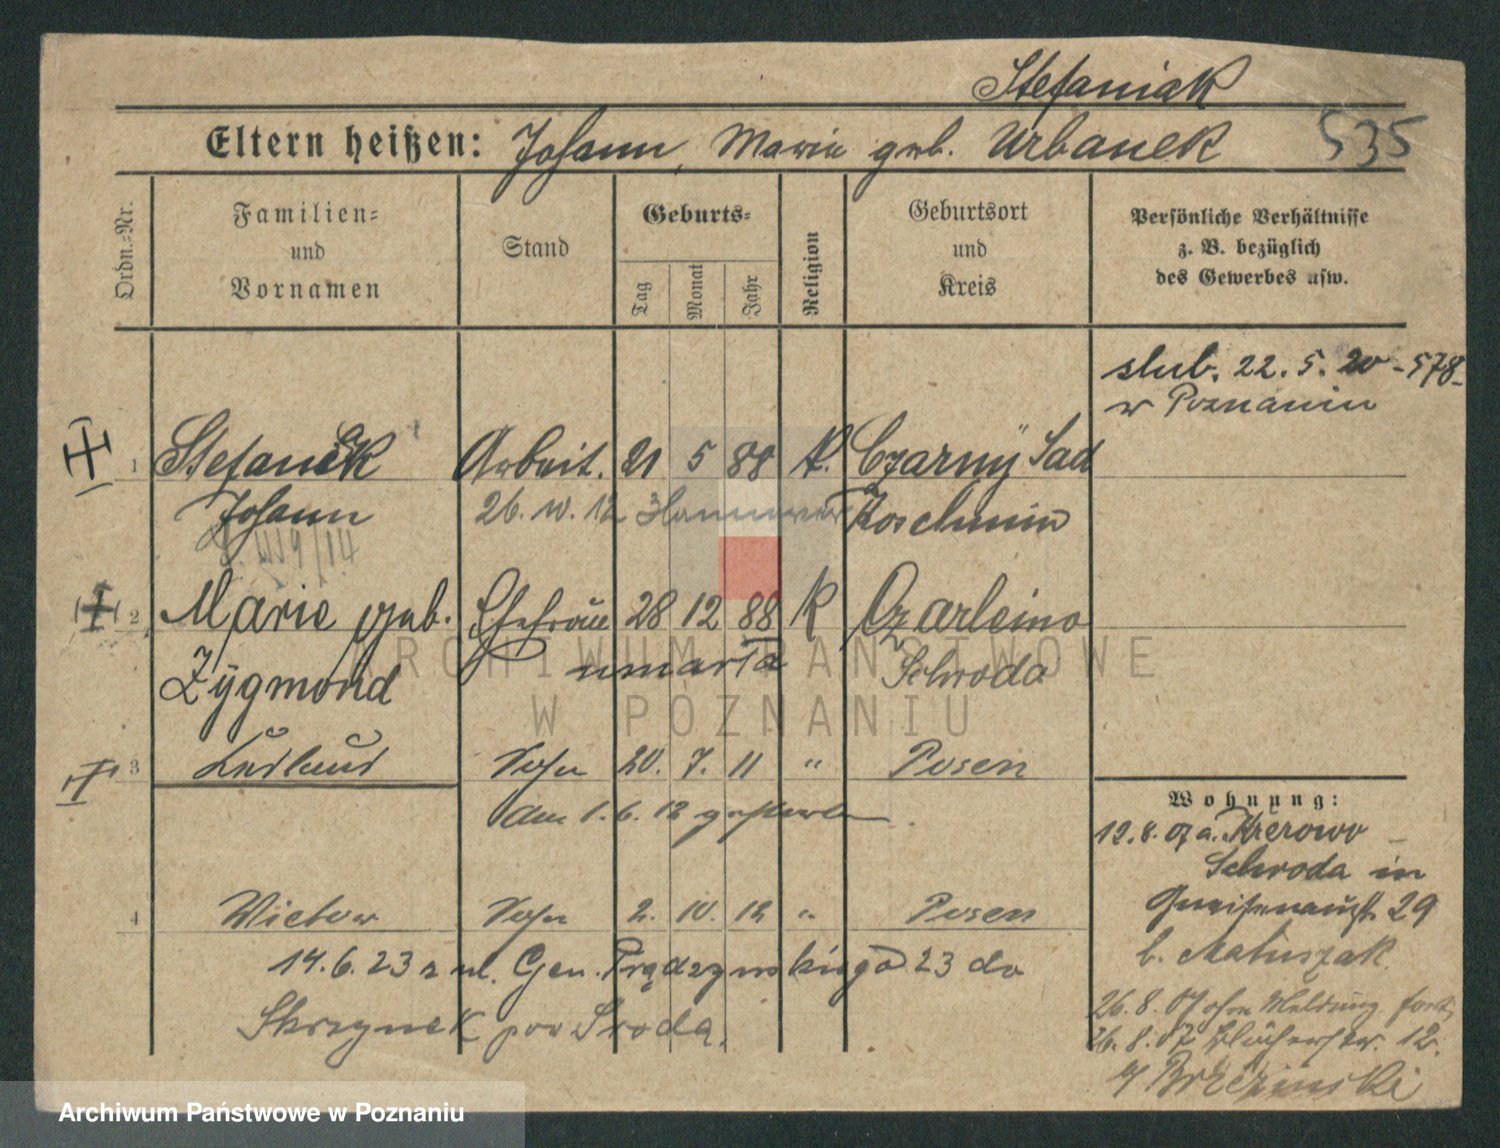 Stefaniak
Eltern heißen: Johann, Marie geb. Urbanek 535
Ordn.=Nr.
Familien=
und
Vornamen
Stand
Geburts=
Tag Monat Jahr
Religion
Geburtsort
und
Kreis
Persönliche Verhältnisse
z. B. bezüglich
des Gewerbes usw.
slub. 22. 5. 20 - 578
w Poznaniu
1 Stefaniak Arbeit. 21 5 88 K. Czarny Sad
Johann 26. 10. 12 Hannover Koschmin
2 Marie geb. Ehefrau 28 12 88 K Czarleino
umarła
Zygmond Schroda
3 Sohn 20. 7. 11 " Posen
Am 1. 6. 12 gestorben
4 Wictor Sohn 2. 10. 12 " Posen
14. 6. 23 z ul. Gen. Prądzyńskiego 23 do
Skrzynek pow Sroda.
Wohnung:
12. 8. 07 a. Krerowo
Schroda in
Gneisenaustr. 29
b. Matuszak.
26. 8. 07 ohne Meldung fort
26. 8. 07 Blücherstr. 12.
b/ Brzezinski
ARCHIWUM PAŃSTWOWE
W POZNANIU
Archiwum Państwowe w Poznaniu